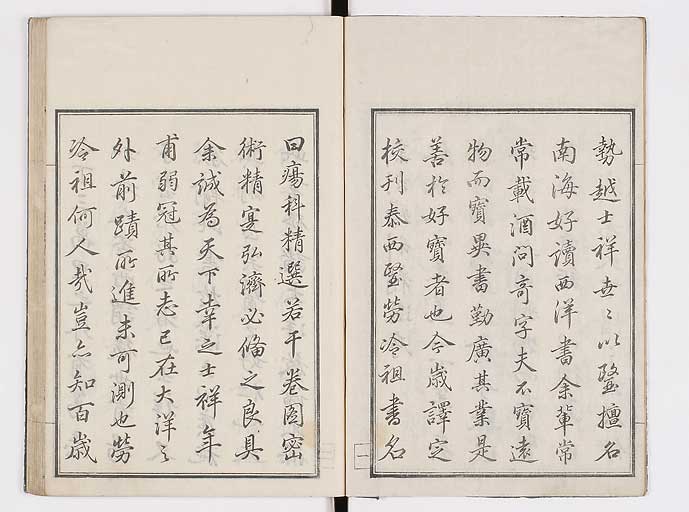 勢越士祥世〻以毉擅名
南海好讀西洋書余輩常
常載酒問奇字夫不寳遠
物而寳異書勤廣其業是
善於好寳者也今歳譯定
校刋泰西毉勞冷祖書名
曰瘍科精選若干卷圖密
術精寔弘濟必備之良具
余誠為天下幸之士祥年
甫弱冠其所志已在大洋之
外前蹟所進未可測也勞
冷祖何人哉豈亦知百歳